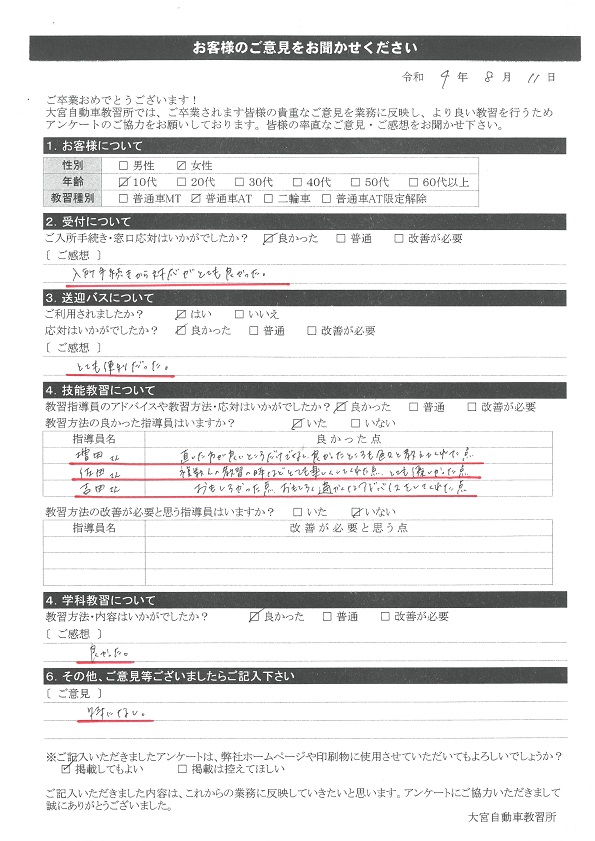 お客様のご意見をお聞かせください
令和 4 年 8 月 11 日
ご卒業おめでとうございます!
大宮自動車教習所では、ご卒業されます皆様の貴重なご意見を業務に反映し、より良い教習を行うため
アンケートのご協力をお願いしております。皆様の率直なご意見・ご感想をお聞かせ下さい。
1. お客様について
性別 □ 男性 ☑ 女性
年齢 ☑ 10代 □ 20代 □ 30代 □ 40代 □ 50代 □ 60代以上
教習種別 □ 普通車MT ☑ 普通車AT □ 二輪車 □ 普通車AT限定解除
2. 受付について
ご入所手続き・窓口応対はいかがでしたか? ☑ 良かった □ 普通 □ 改善が必要
[ ご感想 ]
入所手続きから対応がとても良かった。
3. 送迎バスについて
ご利用されましたか? ☑ はい □ いいえ
応対はいかがでしたか? ☑ 良かった □ 普通 □ 改善が必要
[ ご感想 ]
とても便利だった。
4. 技能教習について
教習指導員のアドバイスや教習方法・応対はいかがでしたか? ☑ 良かった □ 普通 □ 改善が必要
教習方法の良かった指導員はいますか? ☑ いた □ いない
指導員名 良かった点
増田さん 直した方が良いところだけでなく良かったところも色々と教えてくれた点
佐田さん 教習の時などとても楽しくしてくれた点、とても優しかった点
吉田さん おもしろかった点、おもしろく適かくなアドバイスをしてくれた点
教習方法の改善が必要と思う指導員はいますか? □ いた ☑ いない
指導員名 改善が必要と思う点
4. 学科教習について
教習方法・内容はいかがでしたか? ☑ 良かった □ 普通 □ 改善が必要
[ ご感想 ]
良かった。
6. その他、ご意見等ございましたらご記入下さい
[ ご意見 ]
特にない。
※ご記入いただきましたアンケートは、弊社ホームページや印刷物に使用させていただいてもよろしいでしょうか?
☑ 掲載してもよい □ 掲載は控えてほしい
ご記入いただきました内容は、これからの業務に反映していきたいと思います。アンケートにご協力いただきまして
誠にありがとうございました。
大宮自動車教習所